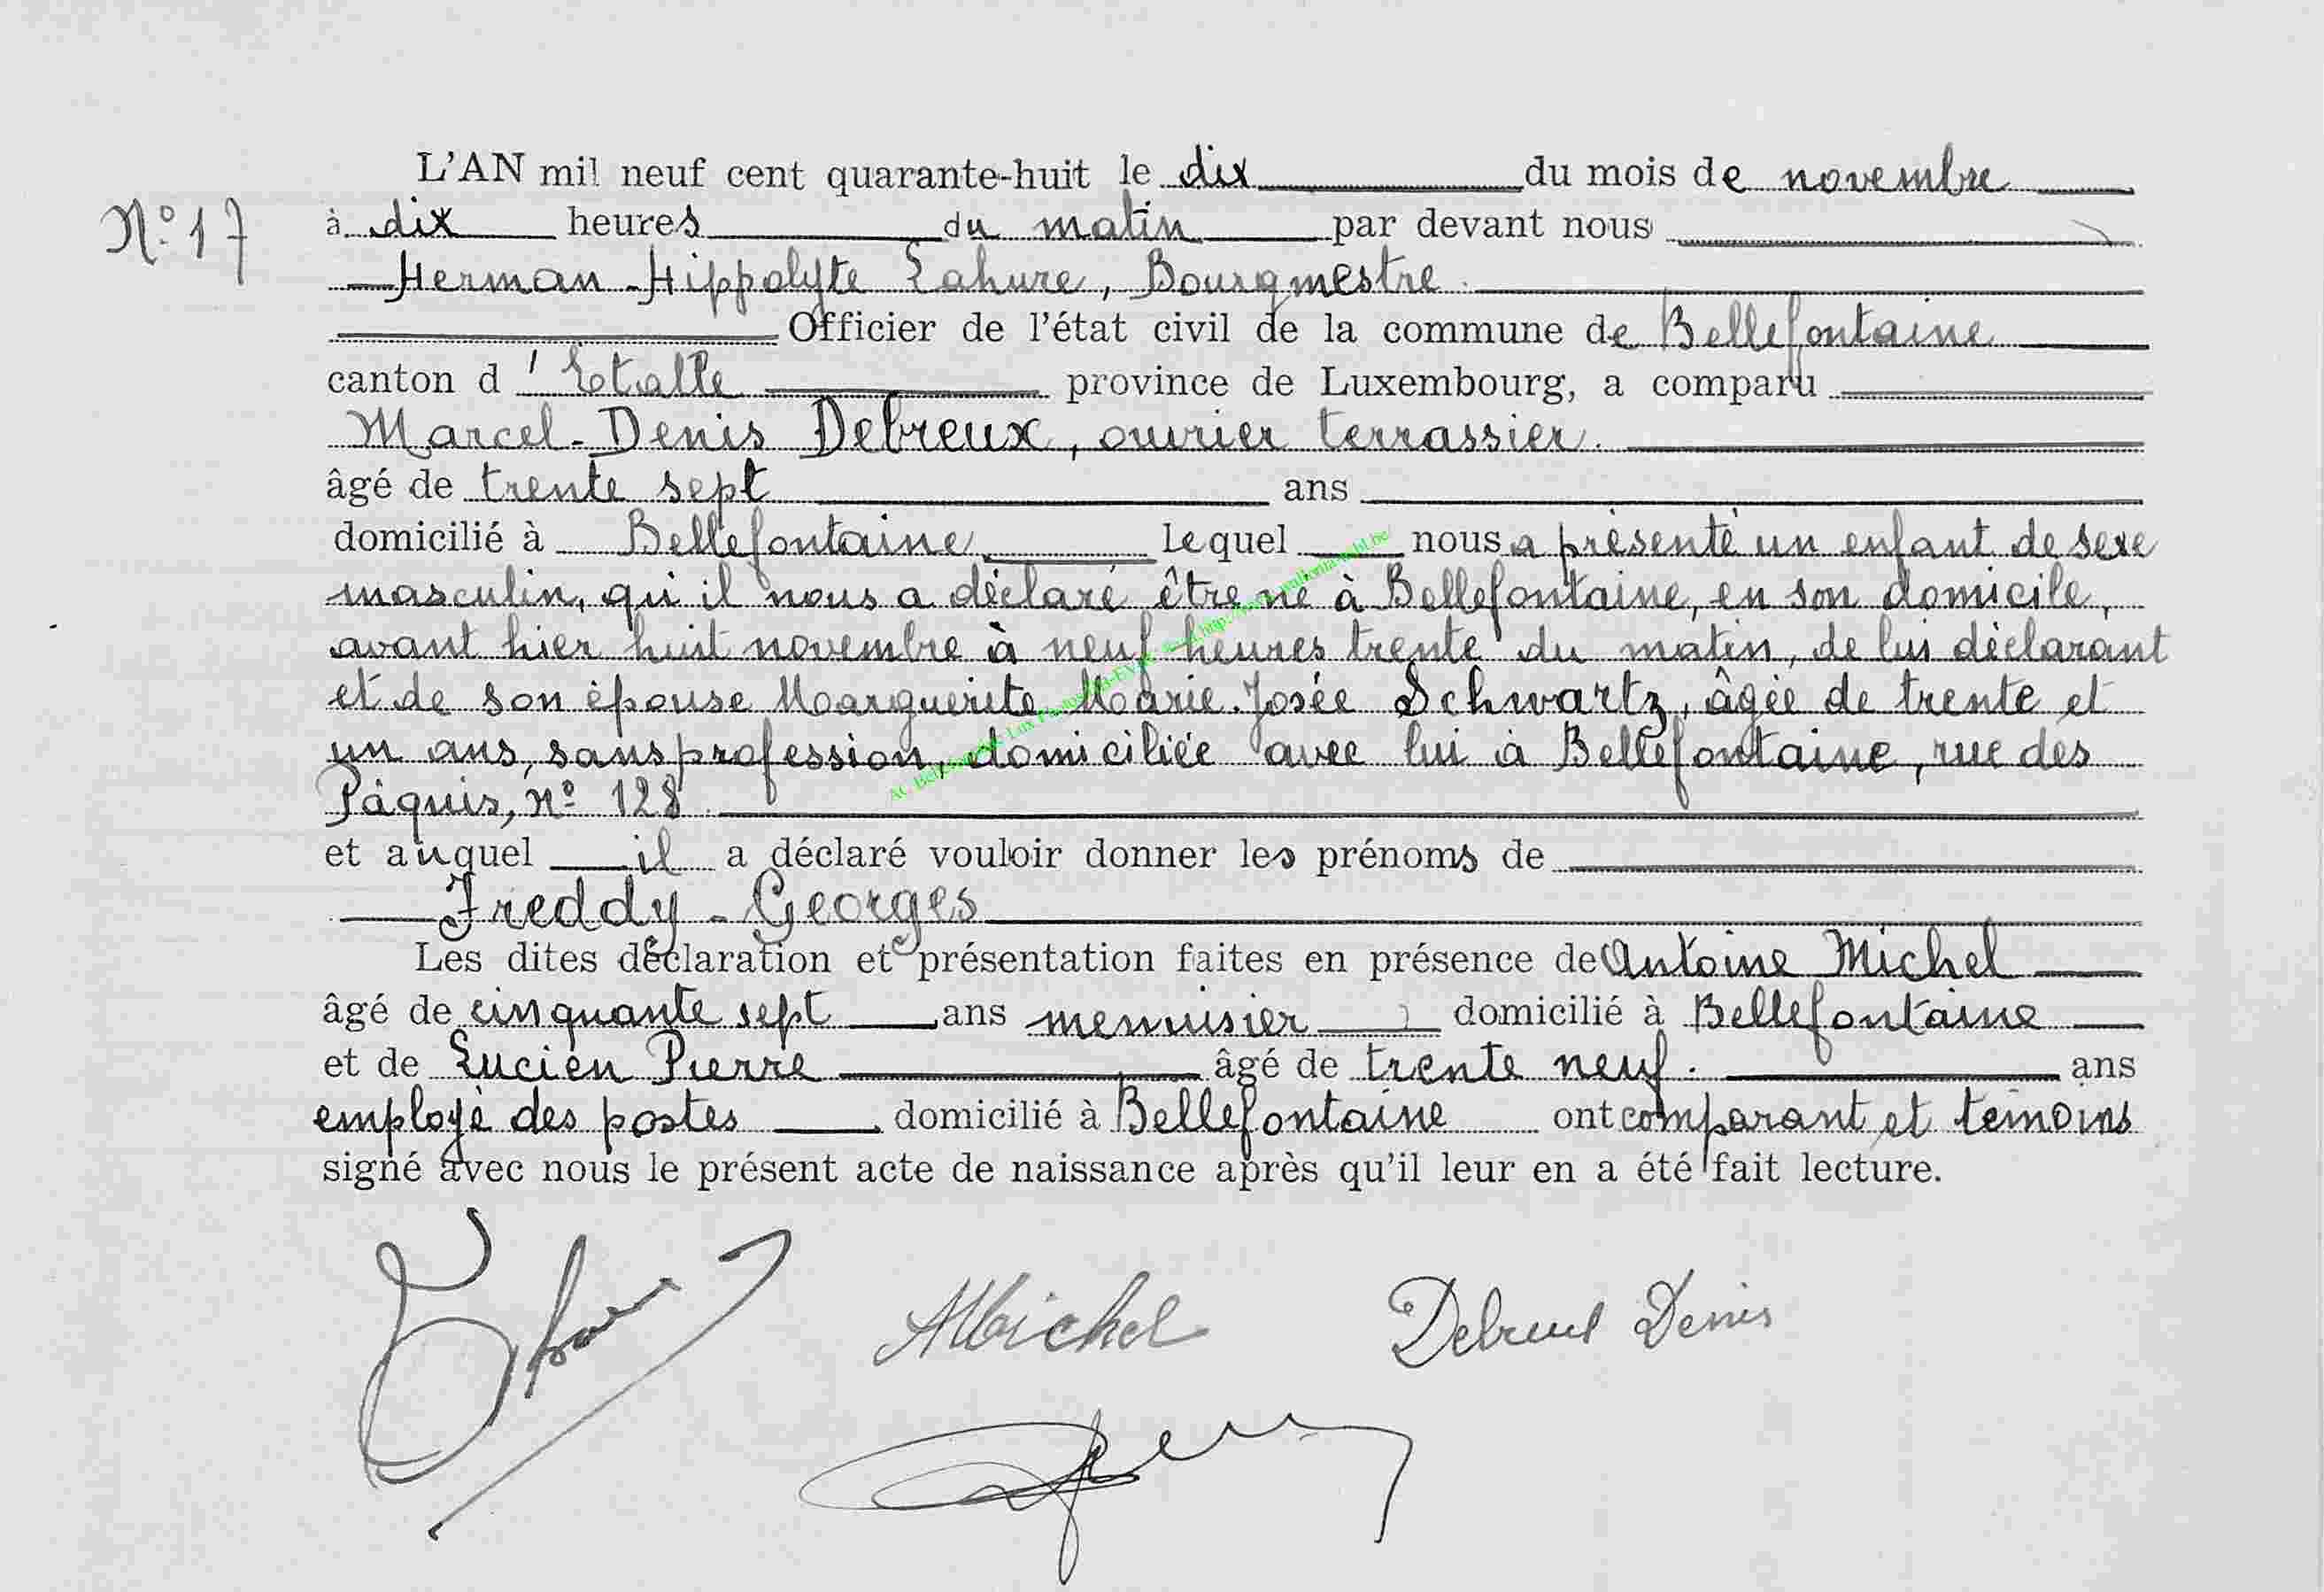 L'AN mil neuf cent quarante-huit le dix du mois de novembre
N° 17
à dix heures du matin par devant nous
Herman-Hippolyte Lahure, Bourgmestre
Officier de l'état civil de la commune de Bellefontaine
canton d'Etalle province de Luxembourg, a comparu
Marcel-Denis Debreux, ouvrier terrassier.
âgé de trente sept ans
domicilié à Bellefontaine Lequel nous a présenté un enfant de sexe
masculin, qu'il nous a déclaré être né à Bellefontaine, en son domicile,
avant hier huit novembre à neuf heures trente du matin, de lui déclarant
et de son épouse Marguerite Marie-Josée Schwartz, âgée de trente et
un ans, sans profession, domiciliée avec lui à Bellefontaine, rue des
Pâquis, n° 128
et auquel il a déclaré vouloir donner les prénoms de
Freddy-Georges
Les dites déclaration et présentation faites en présence de Antoine Michel
âgé de cinquante sept ans menuisier domicilié à Bellefontaine
et de Lucien Pierre âgé de trente neuf. ans
employé des postes domicilié à Bellefontaine ont comparant et témoins
signé avec nous le présent acte de naissance après qu'il leur en a été fait lecture.
AMichel Debreux Denis